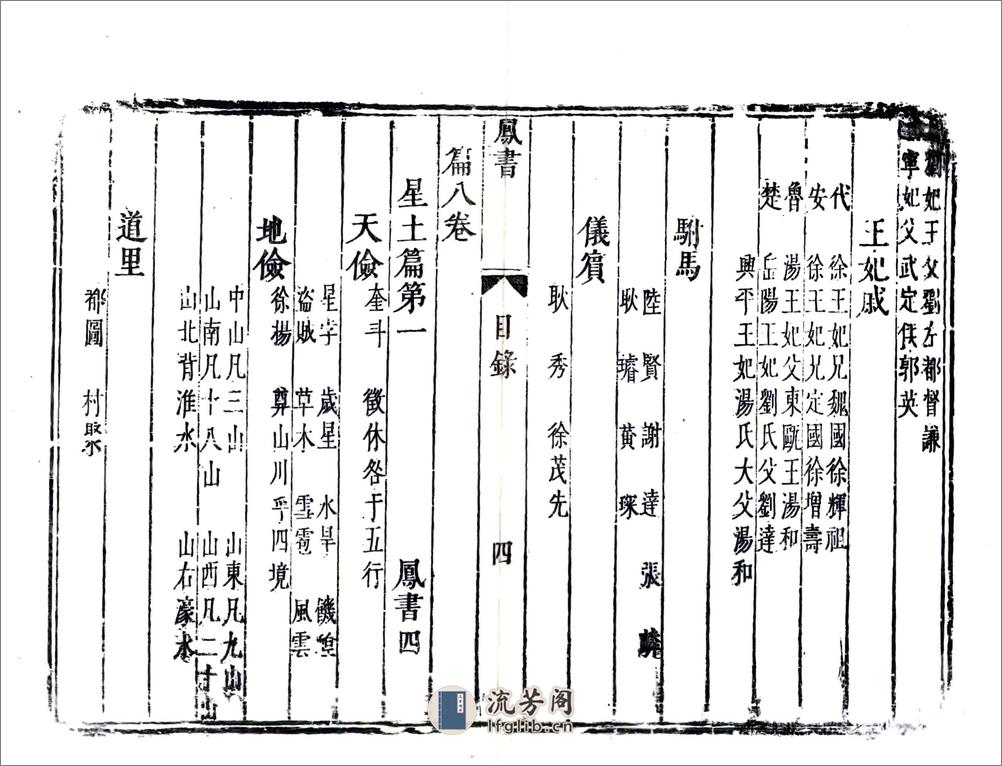 劉妃王父劉左都督謙
寧妃父武定侯郭英
王妃戚
代 徐王妃兄魏國徐輝祖
安 徐王妃兄定國徐增壽
魯 湯王妃父東甌王湯和
楚 岳陽王妃劉氏父劉達
興平王妃湯氏大父湯和
駙馬
陸賢 謝達 張
耿璿 黃琛
儀賓
耿秀 徐茂先
鳳書 目錄 四
篇八卷
星土篇第一 鳳書四
天儉 奎斗 徵休咎于五行
星孛 歲星 水旱 饑蝗
盜賊 草木 雪雹 風雲
地儉 徐楊 尊山川乎四境
中山凡三山 山東凡九山
山南凡十八山 山西凡二十山
山北背淮水 山右濠水
道里
都圖 村聚
流芳阁
lfglib.cn